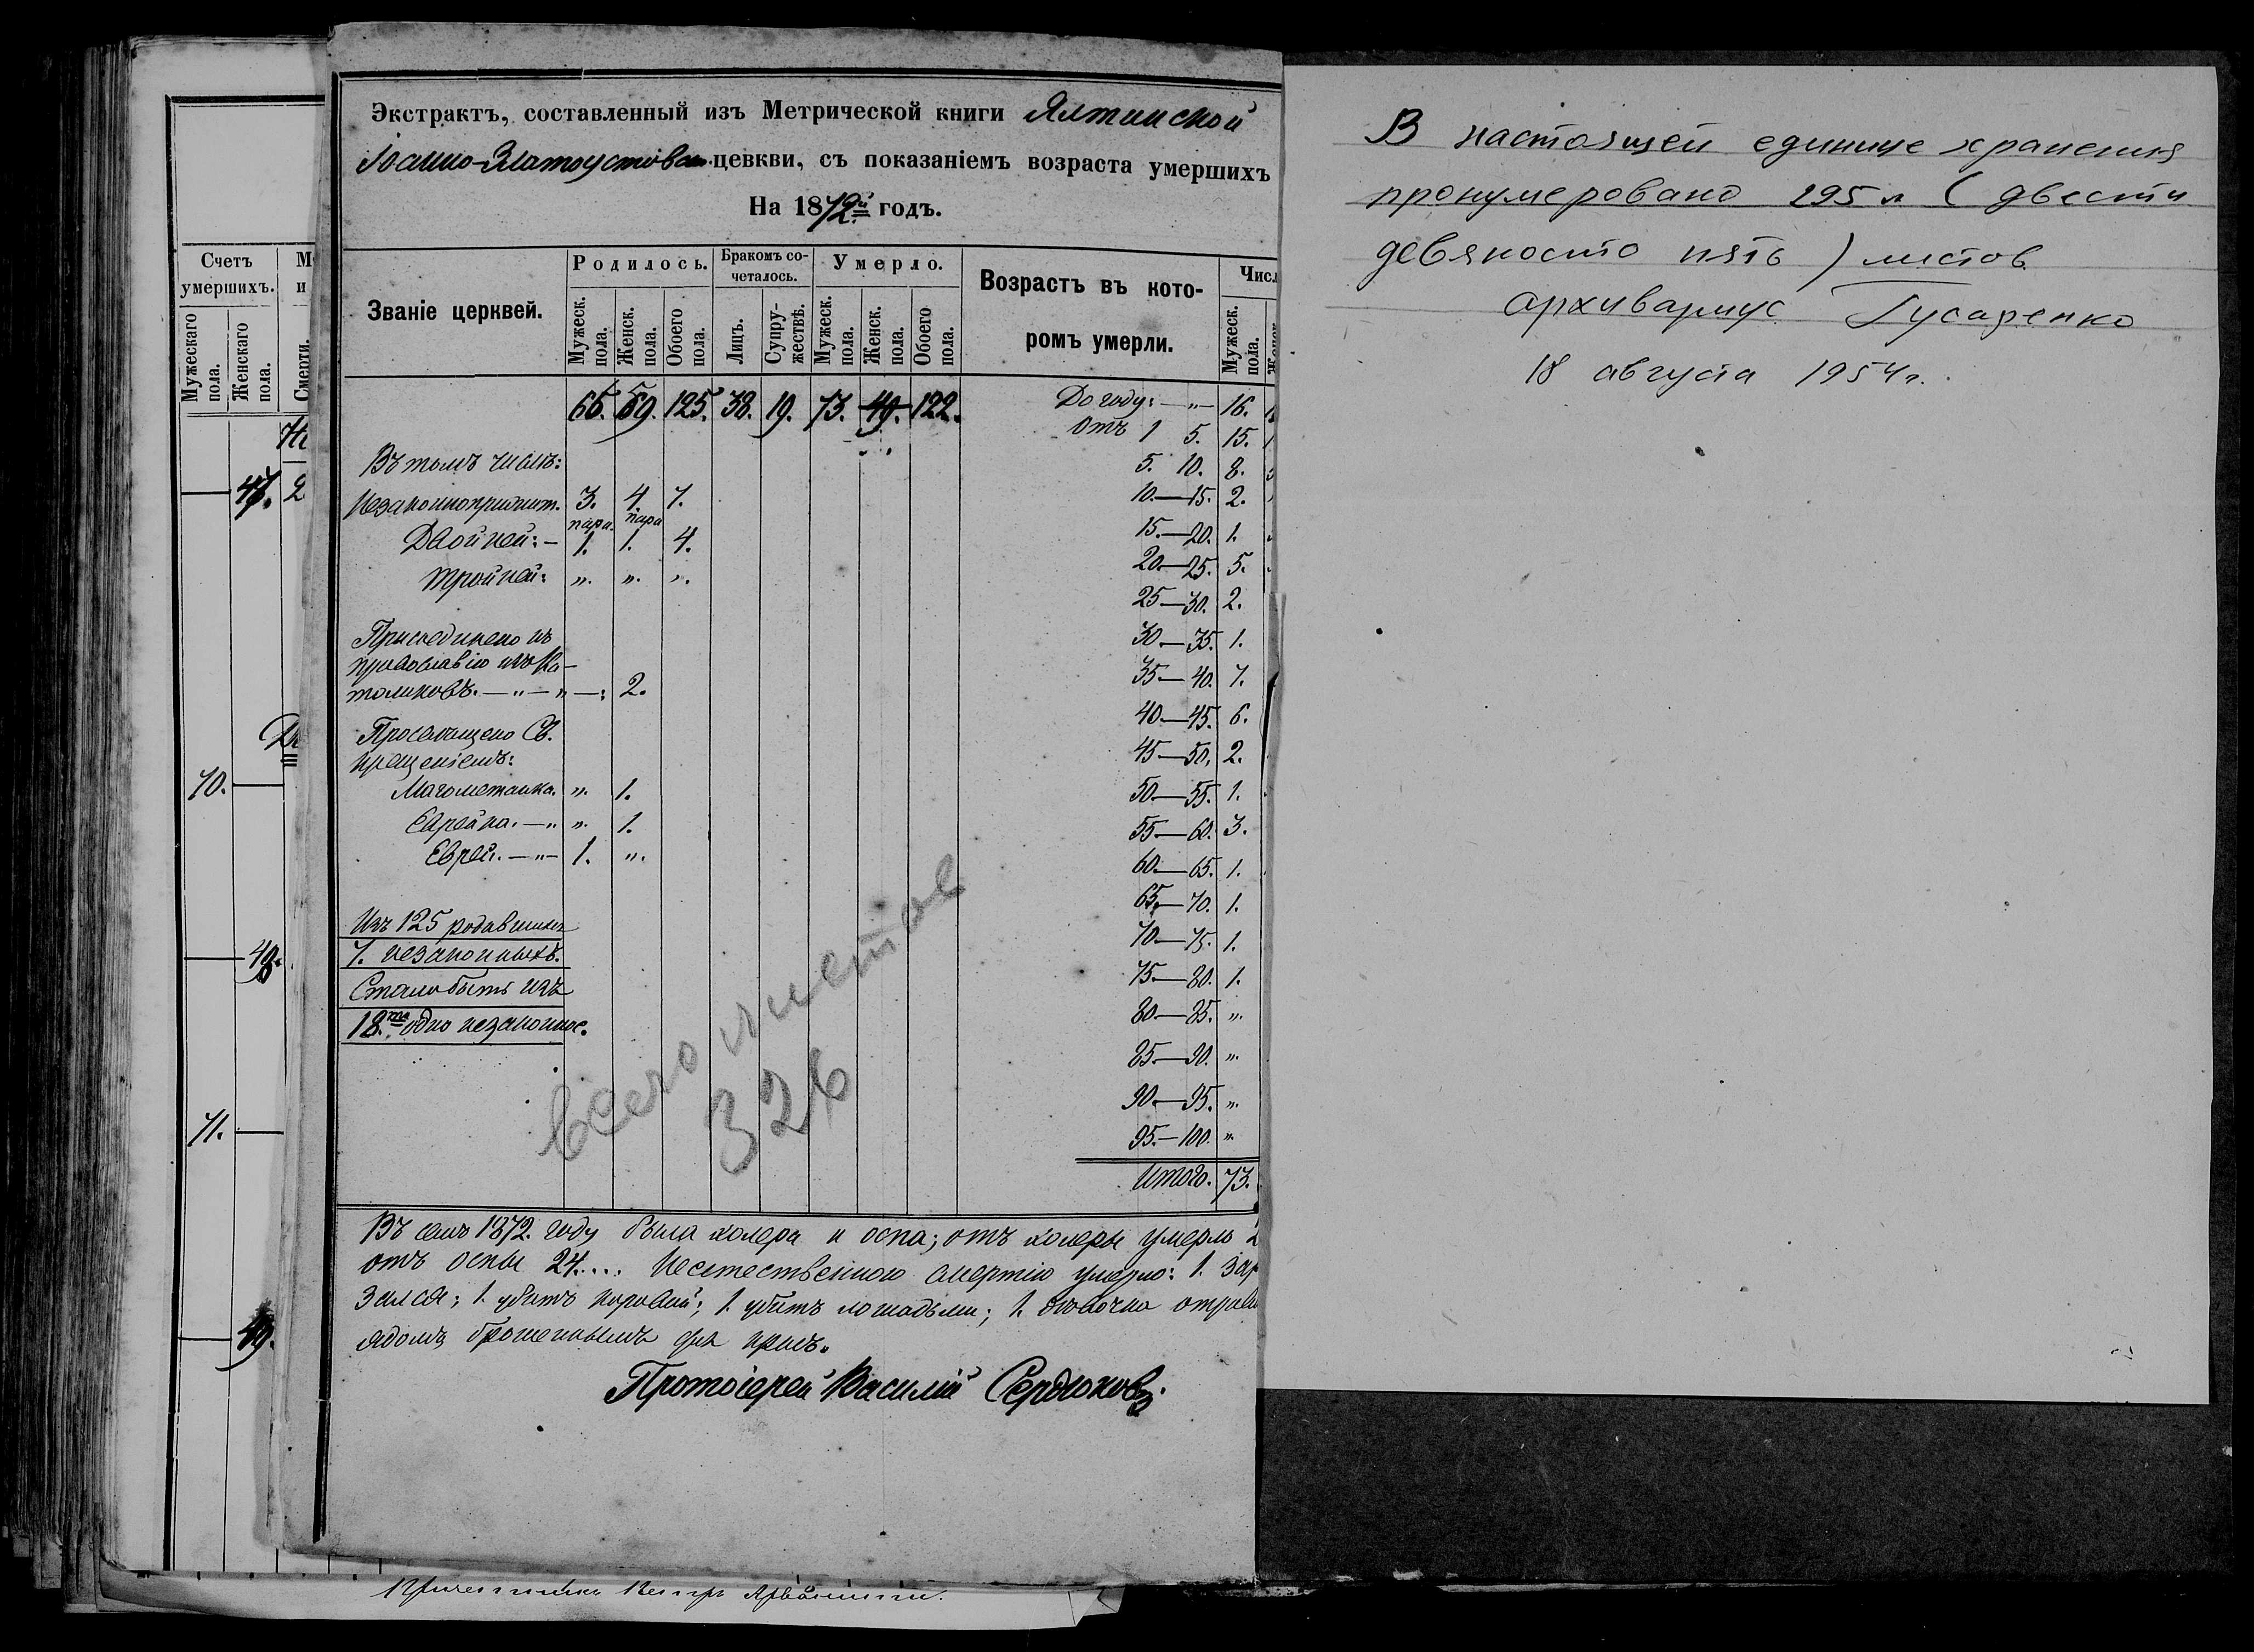 Счетъ
умершихъ.
Мужескаго
пола.
Женскаго
пола.
Смерти.
47. 2
70.
49.
71.
49.
Экстрактъ, составленный изъ Метрической книги Ялтинской
Іоанно-Златоустовской цевкви, съ показаніемъ возраста умершихъ
На 1872й годъ.
Званіе церквей.
Родилось.
Бракомъ со-
четалось.
Умерло.
Возрастъ въ кото-
ромъ умерли.
Числ
Мужеск.
пола.
Женск.
пола.
Обоего
пола.
Лицъ.
Супру-
жествѣ.
Мужеск.
пола.
Женск.
пола.
Обоего
пола.
Мужеск.
пола.
66. 59. 125. 38. 19. 73. 49. 122.
До году: — „ — 16.
Отъ 1 5. 15.
Въ томъ числѣ:
5. 10. 8.
Незаконноприжит. 3. 4. 7.
10.—15. 2.
пара. пара
Двойней: — 1. 1. 4.
15.—20. 1.
Тройней: „. „. „.
20.—25. 5.
25—30. 2.
Присоединено къ
30—35. 1.
православію изъ Ка-
толиковъ. — „ — „ — : 2.
35.—40. 7.
40.—45. 6.
Просвѣщено Св.
крещеніемъ:
45—50. 2.
Магометанка. „. 1.
50.—55. 1.
Еврейка. — „ „. 1.
55.—60. 3.
Еврей. — „ — 1. „.
60.—65. 1.
65.—70. 1.
Изъ 125 родившихъ
7. незаконныхъ.
70—75. 1.
Стало быть изъ
75.—80. 1.
18.та одно незаконное.
80.—85. „.
85.—90. „.
90.—95. „.
95.—100. „.
Итого. 73.
всего листов
326
Въ семъ 1872. году была холера и оспа; отъ холеры умерло
отъ оспы 24.... Неестественною смертію умерло: 1. зар
зался; 1. убитъ коровой; 1. убитъ лошадьми; 1. дѣвочка отрави
ядомъ брошеннымъ для крысъ.
Протоіерей Василій Сердюковъ.
В настоящей единице хранения
пронумеровано 295 л (двести
девяносто пять) листов
архивариус Гусаренко
18 августа 1954 г.